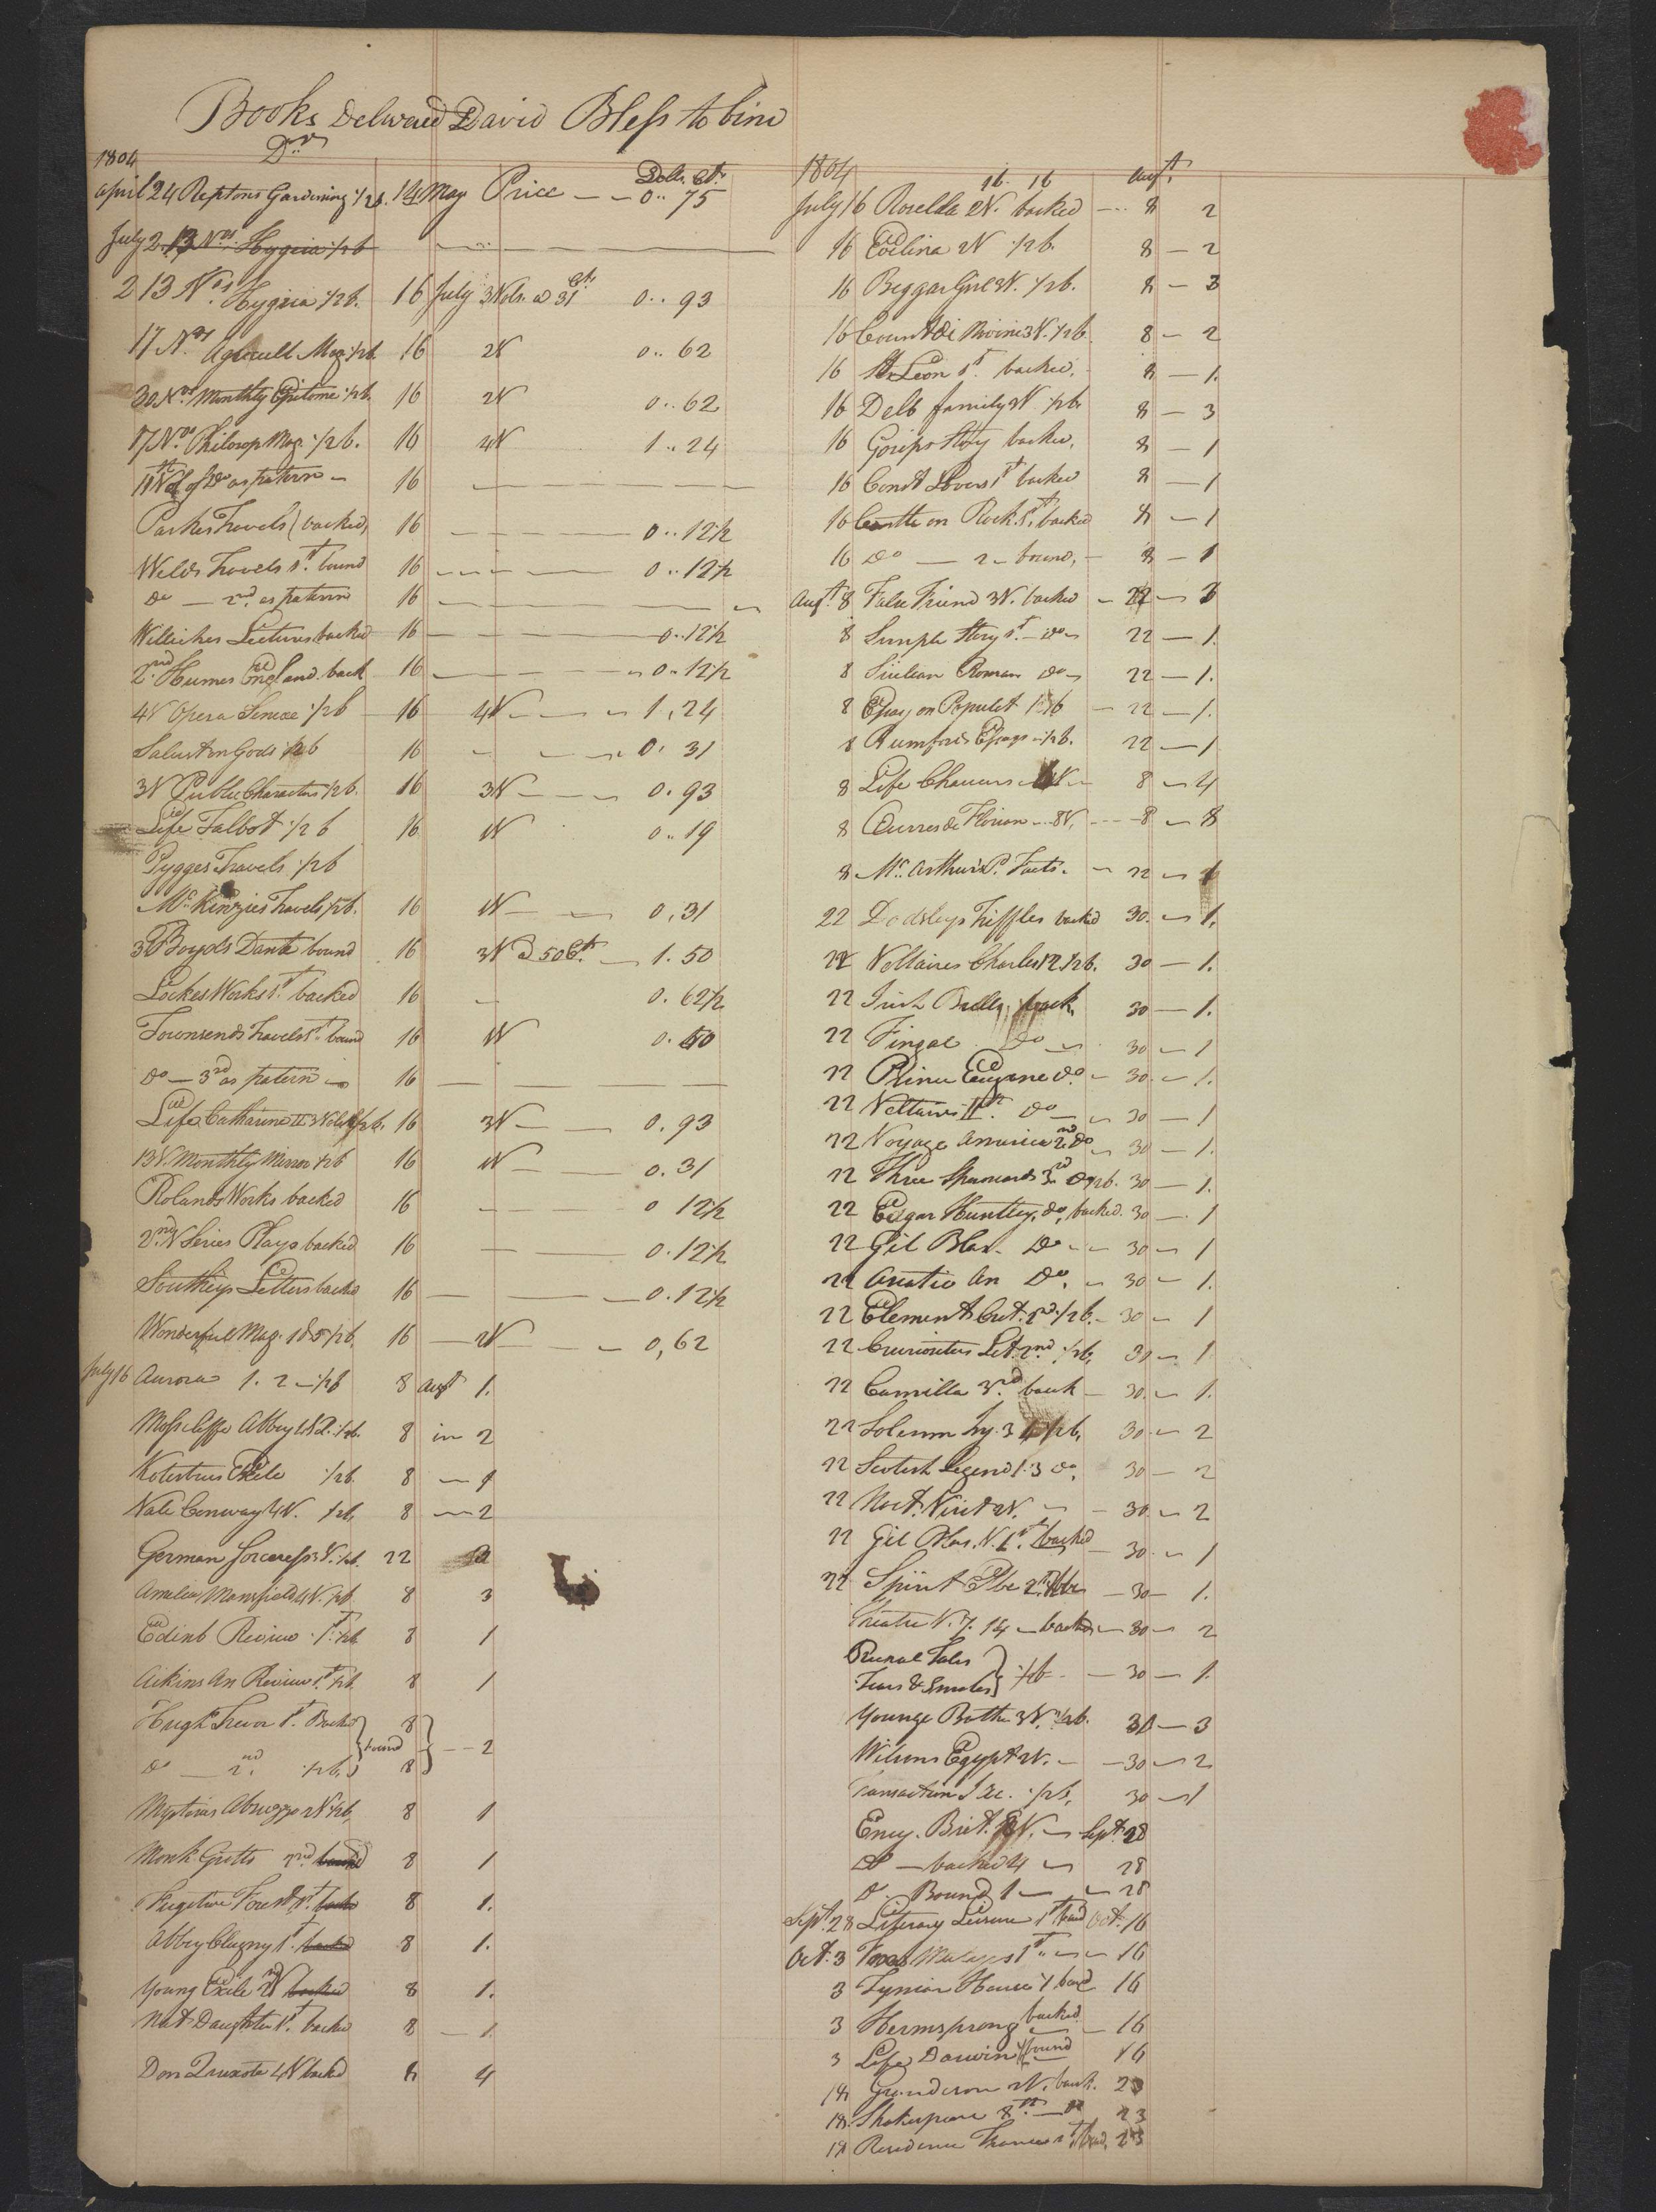 Books Delivered David Bless to bind
Dr
1804
Dolls. Cts.
April 24 Reptons Gardening 1/2 b. 14 May Price — — 0 .. 75
July 2 13 Nos. Hygeia 1/2 b
2 13 Nos. Hygeia 1/2 b. 16 July 3 Vols. @ 31 Cts. 0 .. 93
17 Nos. Agricult Mag. 1/2 b. 16 2V 0 .. 62
30 Nos. Monthly Epitome 1/2 b. 16 2V 0 .. 62
17 Nos. Philosop Mag. 1/2 b. 16 4V 1 .. 24
of Do as patern — 16
Parkes Travels (backed) 16 0 .. 12 1/2
Welds Travels 1st. bound 16 0 .. 12 1/2
Do — 2nd. as patern 16
Willichs Lectures backed 16 0 .. 12 1/2
2nd Humes England. back 16 0 .. 12 1/2
4V Opera Senecae 1/2 b 16 4V 1 , 24
Salust on Gods 1/2 b 16 0 . 31
3V Public Characters 1/2 b. 16 3V 0 . 93
Life Talbot 1/2 b 16 1V 0 .. 19
Pygges Travels 1/2 b
Mc. Kinzies Travels 1/2 b. 16 1V 0 , 31
3 Boyds Dante bound 16 3V @ 50 Cts. 1 . 50
Lockes Works 1st. backed 16 0 . 62 1/2
Townsends Travels 1st. bound 16 1V 0 . 50
Do — 3rd as patern 16
Life Catharine II 3 Vols 1/2 b. 16 3V 0 . 93
13 V. Monthly Mirror 1/2 b 16 1V 0 . 31
Rolands Works backed 16 0 12 1/2
2nd. V Series Plays backed 16 0 . 12 1/2
Southeys Letters backed 16 0 . 12 1/2
Wonderful Mag. 1 & 5 1/2 b. 16 2V 0 , 62
July 16 Aurora 1. 2 — 1/2 b 8 Augt 1.
Mosscliffe Abbey 1 & 2. 1/2 b. 8 2
Exile 1/2 b. 8
Vale Conway 4V. 1/2 b. 8 — 2
German Sorceress 3V. 1/2 b. 22
Amelia Mansfield 4V. 1/2 b 8 3
Edinb Review 1st. 1/2 b 8 1
Aikins An Review 1st. 1/2 b 8 1
Hugh Trevor 1st. Backed 8
bound — 2
Do — 2nd. 1/2 b. 8
Mysterius Abruzzo 2V 1/2 b. 8 1
Monk Grotto 2nd backed 8 1
Fugitive Forest 1st. backed 8 1.
Abbey Clugny 1st. backed 8 1.
Young Exile 2nd backed 8 1.
Nat Daughter 1st. backed 8 — 1
Don Quixote 4V backed 8 4
1804 16. 16 Augt.
July 16 Rosella 2V. backed — 8 2
16 Evelina 2V 1/2 b. 8 — 2
16 Beggar Girl 3V. 1/2 b. 8 — 3
16 Count di Novini 3V. 1/2 b. 8 — 2
16 St. Leon 1st. backed. 8 — 1.
16 Delb family 3V 1/2 b. 8 — 3
16 Gosips Story backed. 8 — 1
16 Const Lovers 1st backed 8 — 1
16 Castle on Rock. 1st. backed 8 — 1
16 Do — 2 — bound. — 8 — 1
Augt. 8 False Friend 3V. backed — 22 — 3
8 Simple Story 1st. — Do — 22 — 1.
8 Sicilean Roman Do — 22 — 1.
8 Essay on Populat 1/2 b — 22 — 1.
8 Rumfords Essays 1/2 b. 22 — 1
8 Life Chaucers 4V — 8 — 4
8 Ouvres de Florian — 8V. — 8 — 8
8 Mc. Arthurs P. Facts. — 22 — 1
22 Dodsleys Triffles backed 30. — 1.
22 Voltaires Charles 12. 1/2 b. 30 — 1.
22 Irish Bulls, back. 30 — 1.
22 Fingal Do — 30 — 1
22 Prince Eugene Do. — 30. — 1.
22 Voltaires Do — 30 — 1
22 Voyage America 2nd Do — 30 — 1.
22 Three Spaniards 3rd. 1/2 b. 30 — 1.
22 Edgar Huntley, Do, backed. 30 — 1
22 Gil Blas. Do — 30 — 1
22 Asiatic An Do. — 30 — 1.
22 Element Crit. 2nd. 1/2 b. — 30 — 1
22 Curiosities Lit. 2nd. 1/2 b. 30 — 1.
22 Camilla 3rd. back — 30. — 1.
22 Solemn Inj. 3 4 1/2 b. 30. — 2
22 Scotish Legend 1. 3 Do. 30 — 2
22 Noct. Visit 2V. — 30. — 2
22 Gil Blas. V. 1st. backed — 30. — 1
22 Spirit Elbe 2nd — 30 — 1.
Theatre V. 7. 14 — backed — 30 — 2
Rural Tales
1/2 b — — 30 — 1.
Tears & Smiles
Younge Brother 3V. 1/2 b. 30 — 3
Wilsons Egypt 2V. — — 30 — 2
Transaction Soc. 1/2 b. 30 — 1
Ency. Brit. 8V. — Sept. 28
Do — backed 4 — 28
Do. Bound 1 — — 28
Sept. 28 Literary Leisure 1st bound Oct. 16
Oct. 3 1st — 16
3 House 1 bound 16
3 Hermsprong backed — 16
3 Life Darwin bound 16
18 Grandison 2V. back. 23
18. Shakespeare 8th. — Do 23
18 Residence France 1st. bound, 23